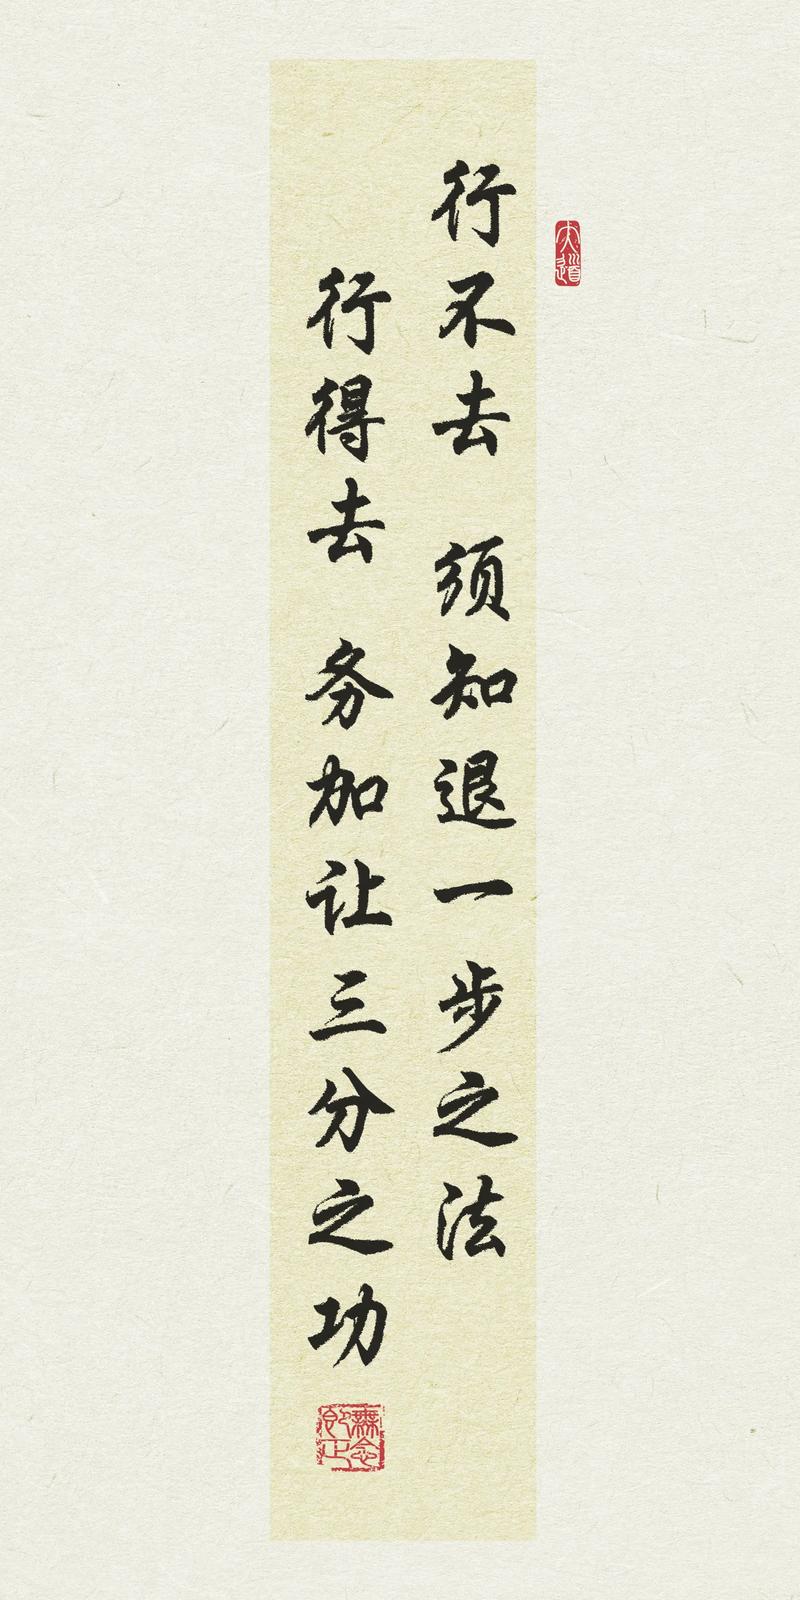 行不去 须知退一步之法
行得去 务加让三分之功
大道
無念即正